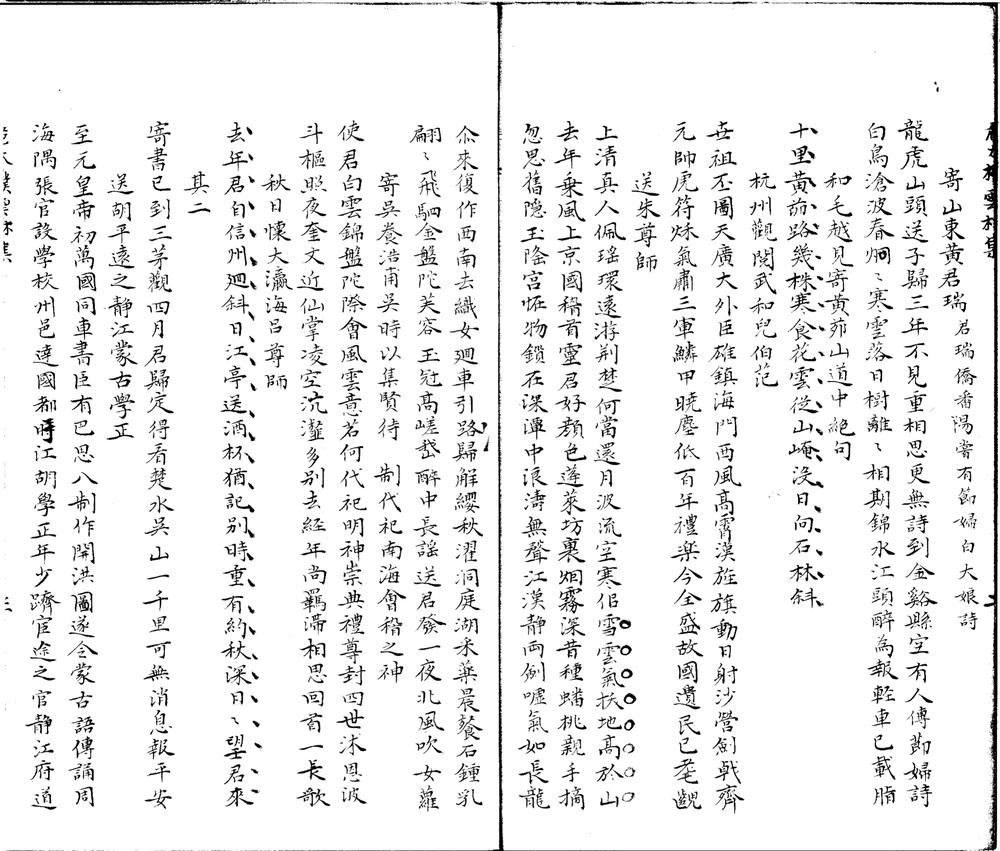 寄山東黃君瑞 君瑞僑番陽嘗有節婦白大娘詩
龍虎山頭送子歸三年不見重相思更無詩到金谿縣空有人傳節婦詩
白鳥滄波春炯〻寒雲落日樹離〻相期錦水江頭醉為報軽車已載脂
和毛越見寄黃茆山道中絕句
十里黃茆路幾株寒食花雲從山崦沒日向石林斜
杭州觀閱武和兒伯范
世祖丕圖天廣大外臣雄鎮海門西風高霄漢旌旗動日射沙營劍戟齊
元帥虎符秌氣肅三軍鱗甲曉塵低百年禮樂今全盛故國遺民已耄齯
送朱尊師
上清真人佩瑤環遠游荆楚何當還月波流空寒侶雪雲氣扶地高於山
去年乗風上京國稽首靈君好顏色蓬萊坊裏烟霧深昔種蟠桃親手摘
忽思舊隠玉隂宮恠物鎖在深潭中浪濤無聲江漢静両例噓氣如長龍
尒來復作西南去織女廻車引路歸解纓秋濯洞庭湖采藥晨餐石鍾乳
翩〻飛駟金盤陀芙容玉冠高嵯峩醉中長謡送君發一夜北風吹女蘿
寄吳養浩甫吳時以集賢待 制代祀南海會稽之神
使君白雲錦盤陀際會風雲意若何代祀明神崇典禮尊封四世沐恩波
斗樞照夜奎文近仙掌凌空沆瀣多别去經年尚羈滯相思回首一長歌
秋日懷大瀛海呂尊師
去年君自信州廻斜日江亭送酒杯猶記别時重有約秋深日〻望君來
其二
寄書已到三茅觀四月君歸定得看楚水吳山一千里可無消息報平安
送胡平遠之静江蒙古學正
至元皇帝初萬國同車書臣有巴思八制作開洪圖遂令蒙古語傳誦周
海隅張官設學校州邑達國都時江胡學正年少躋宦途之官静江府道